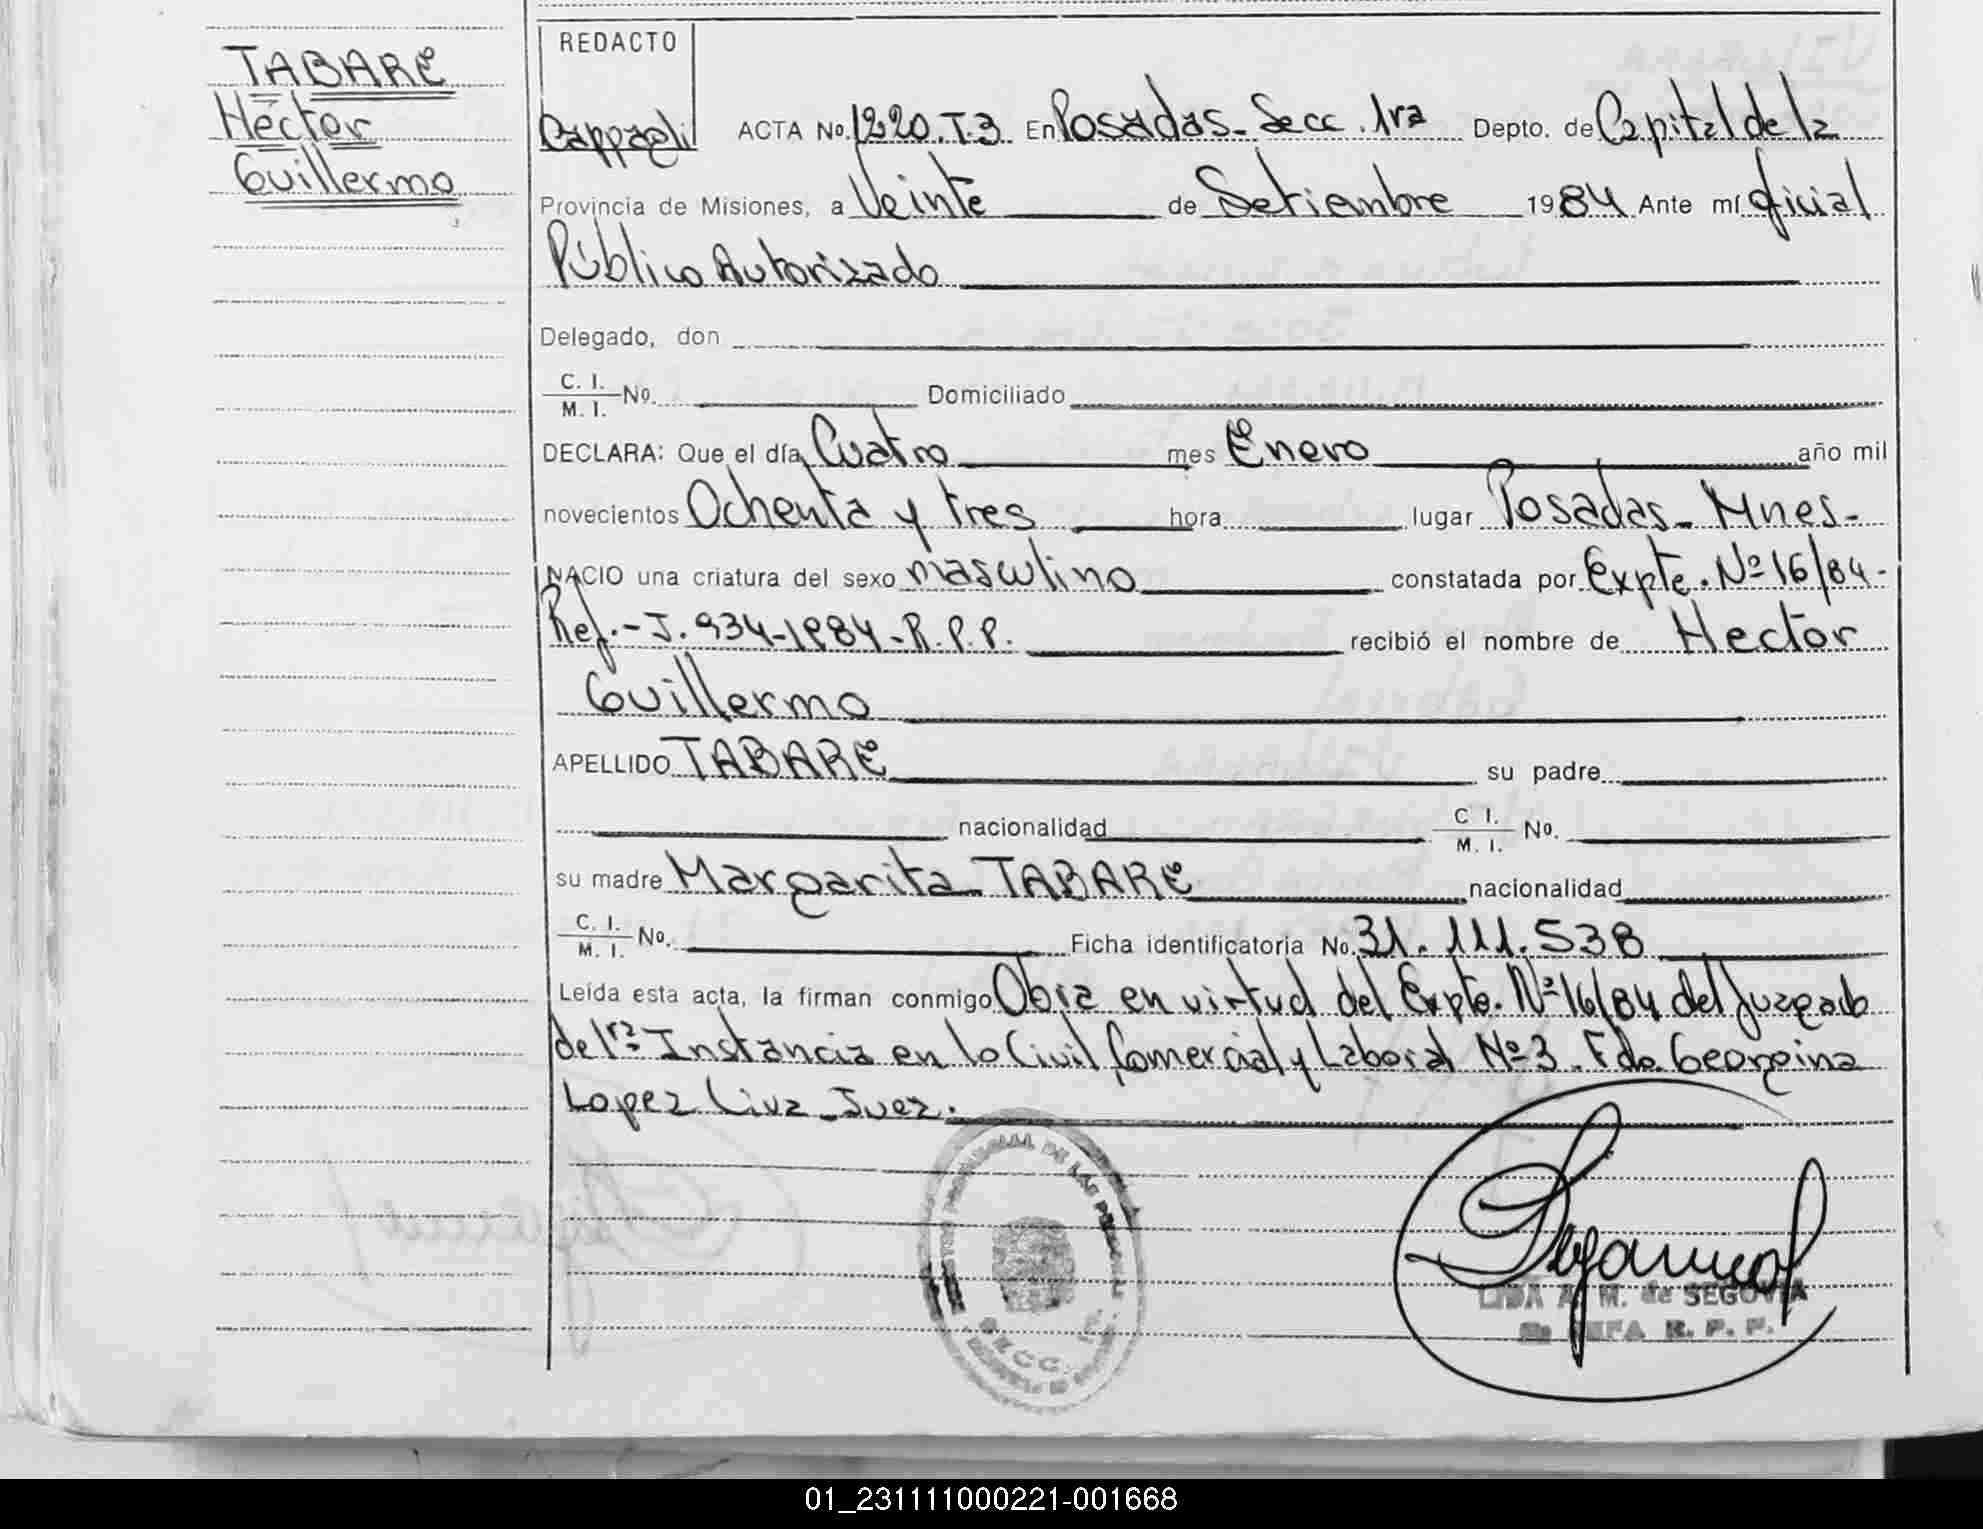 TABARE
Héctor
Guillermo
REDACTO
Cappagli ACTA No. 1220.T.3 En Posadas - Secc. 1ra Depto. de Capital de la
Provincia de Misiones, a Veinte de Setiembre 1984 Ante mí oficial
Público Autorizado
Delegado, don
C. I.
M. I. No. Domiciliado
DECLARA: Que el día Cuatro mes Enero año mil
novecientos Ochenta y tres hora lugar Posadas - Mnes -
NACIO una criatura del sexo masculino constatada por Expte. Nº 16/84 -
Ref. - J. 934-1984 - R.P.P. recibió el nombre de Hector
Guillermo
APELLIDO TABARE su padre
nacionalidad C I.
M. I. No.
su madre Margarita TABARE nacionalidad
C. I.
M. I. No. Ficha identificatoria No. 31.111.538
Leída esta acta, la firman conmigo Obra en virtud del Expte. Nº 16/84 del Juzgado
de 1ra Instancia en lo Civil, Comercial y Laboral Nº 3. Fdo. Georgina
Lopez Liva - Juez.
LIDA A. M. de SEGOVIA
R. P. P.
01_231111000221-001668